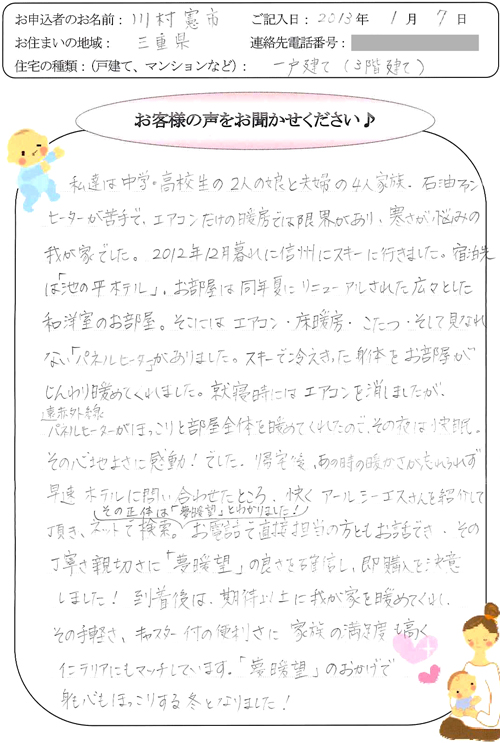 お申込者のお名前: 川村憲市 ご記入日: 2013年 1月 7日
お住まいの地域: 三重県 連絡先電話番号:
住宅の種類:(戸建て、マンションなど): 一戸建て(3階建て)
お客様の声をお聞かせください♪
私達は中学・高校生の2人の娘と夫婦の4人家族。石油ファン
ヒーターが苦手で、エアコンだけの暖房では限界があり、寒さが悩みの
我が家でした。2012年12月暮れに信州にスキーに行きました。宿泊先
は「池の平ホテル」。お部屋は同年夏にリニューアルされた広々とした
和洋室のお部屋。そこにはエアコン・床暖房・こたつ・そして見なれ
ない「パネルヒーター」がありました。スキーで冷えきった身体をお部屋が
じんわり暖めてくれました。就寝時にはエアコンを消しましたが、
遠赤外線
パネルヒーターがほっこりと部屋全体を暖めてくれたので、その夜は快眠。
その心地よさに感動!でした。帰宅後、あの時の暖かさが忘れられず
早速ホテルに問い合わせたところ、快くアールシーエスさんを紹介して
その正体は「夢暖望」とわかりました!
頂き、ネットで検索。お電話で直接担当の方ともお話でき、その
丁寧さ親切さに「夢暖望」の良さを確信し、即購入を決意
しました!到着後は、期待以上に我が家を暖めてくれ、
その手軽さ、キャスター付の便利さに家族の満足度も高く
インテリアにもマッチしています。「夢暖望」のおかげで
身も心もほっこりする冬となりました!